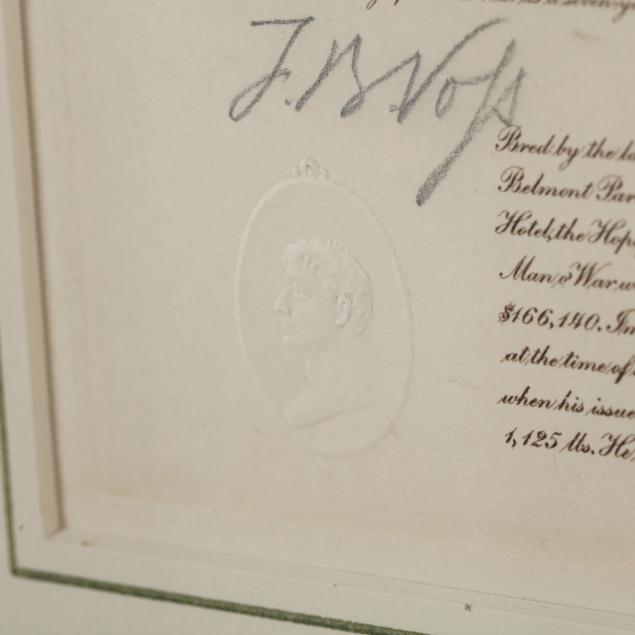 F. B. Voss
Bred by the la
Belmont Par
Hotel, the Hop
Man o' War w
$166,140. In
at the time of
when his issue
1,125 lbs. He